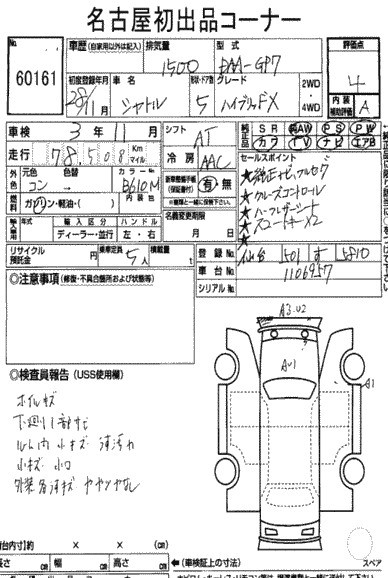 名古屋初出品コーナー
No.
60161
車歴(自家用以外は記入)
排気量
1500
型式
DAA-GP7
評価点
4
内装
補助評価
A
初度登録年月
28年11月
車名
シャトル
形状・ドア数
5
グレード
ハイブリッドX
2WD
4WD
車検
3年11月
走行
78,508
Km
マイル
シフト
AT
冷房
AAC
純正品
SR 純AW PS PW
カワ TV ナビ エアB
セールスポイント
★純正ナビフルセグ
★クルーズコントロール
★ハーフレザーシート
★
★
外色
元色
色替
コン →
カラーNo.
B610M
内装色
燃料
ガソリン・軽油・( )
新車整備手帳
(保証書付)
有・無
名義変更期限
月 日
輸入車用
輸入区分
ハンドル
ディーラー・並行
左・右
リサイクル
預託金
円
乗車定員
5人
積載量
t
登録No.
仙台 501 す 5810
車台No.
1106957
シリアルNo.
◎注意事項(修復・不具合箇所および状態等)
A3.U2
AU1
A1
◎検査員報告(USS使用欄)
ホイルキズ
下廻り一部サビ
ルーム内小キズ 薄汚れ
小キズ 小凹
(荷台内寸)約
×
×
(cm)
長さ
cm
幅
cm
高さ
cm
←(車検証上の寸法)
スペア